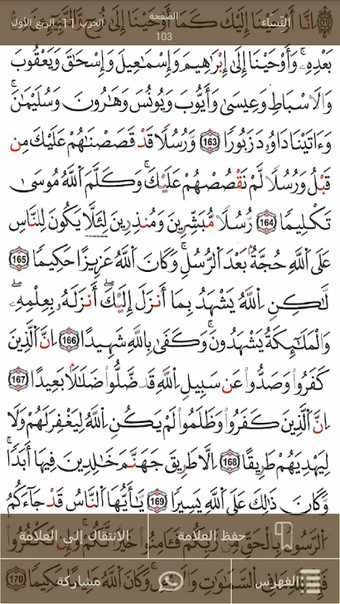 النساء
الصفحة
103
الحزب 11, الربع الأول
إِنَّا أَوْحَيْنَا إِلَيْكَ كَمَا أَوْحَيْنَا إِلَىٰ نُوحٍ وَالنَّبِيِّينَ مِنْ
بَعْدِهِۦ ۚ وَأَوْحَيْنَا إِلَىٰ إِبْرَٰهِيمَ وَإِسْمَٰعِيلَ وَإِسْحَٰقَ وَيَعْقُوبَ
وَالْأَسْبَاطِ وَعِيسَىٰ وَأَيُّوبَ وَيُونُسَ وَهَٰرُونَ وَسُلَيْمَٰنَ ۚ
وَءَاتَيْنَا دَاوُۥدَ زَبُورًا 163 وَرُسُلًا قَدْ قَصَصْنَٰهُمْ عَلَيْكَ مِن
قَبْلُ وَرُسُلًا لَّمْ نَقْصُصْهُمْ عَلَيْكَ ۚ وَكَلَّمَ اللَّهُ مُوسَىٰ
تَكْلِيمًا 164 رُّسُلًا مُّبَشِّرِينَ وَمُنذِرِينَ لِئَلَّا يَكُونَ لِلنَّاسِ
عَلَى اللَّهِ حُجَّةٌۢ بَعْدَ الرُّسُلِ ۚ وَكَانَ اللَّهُ عَزِيزًا حَكِيمًا 165
لَّٰكِنِ اللَّهُ يَشْهَدُ بِمَا أَنزَلَ إِلَيْكَ ۖ أَنزَلَهُۥ بِعِلْمِهِۦ ۖ
وَالْمَلَٰٓئِكَةُ يَشْهَدُونَ ۚ وَكَفَىٰ بِاللَّهِ شَهِيدًا 166 إِنَّ الَّذِينَ
كَفَرُوا وَصَدُّوا عَن سَبِيلِ اللَّهِ قَدْ ضَلُّوا ضَلَٰلًۢا بَعِيدًا 167
إِنَّ الَّذِينَ كَفَرُوا وَظَلَمُوا لَمْ يَكُنِ اللَّهُ لِيَغْفِرَ لَهُمْ وَلَا
لِيَهْدِيَهُمْ طَرِيقًا 168 إِلَّا طَرِيقَ جَهَنَّمَ خَٰلِدِينَ فِيهَا أَبَدًا ۚ
وَكَانَ ذَٰلِكَ عَلَى اللَّهِ يَسِيرًا 169 يَٰٓأَيُّهَا النَّاسُ قَدْ جَاءَكُمُ
الرَّسُولُ بِالْحَقِّ مِن رَّبِّكُمْ فَـَٔامِنُوا خَيْرًا لَّكُمْ ۚ وَإِن تَكْفُرُوا
حفظ العلامة
الانتقال إلى العلامة
فَإِنَّ لِلَّهِ مَا فِي السَّمَٰوَٰتِ وَالْأَرْضِ ۚ وَكَانَ اللَّهُ عَلِيمًا حَكِيمًا 170
الفهرس
مشاركة